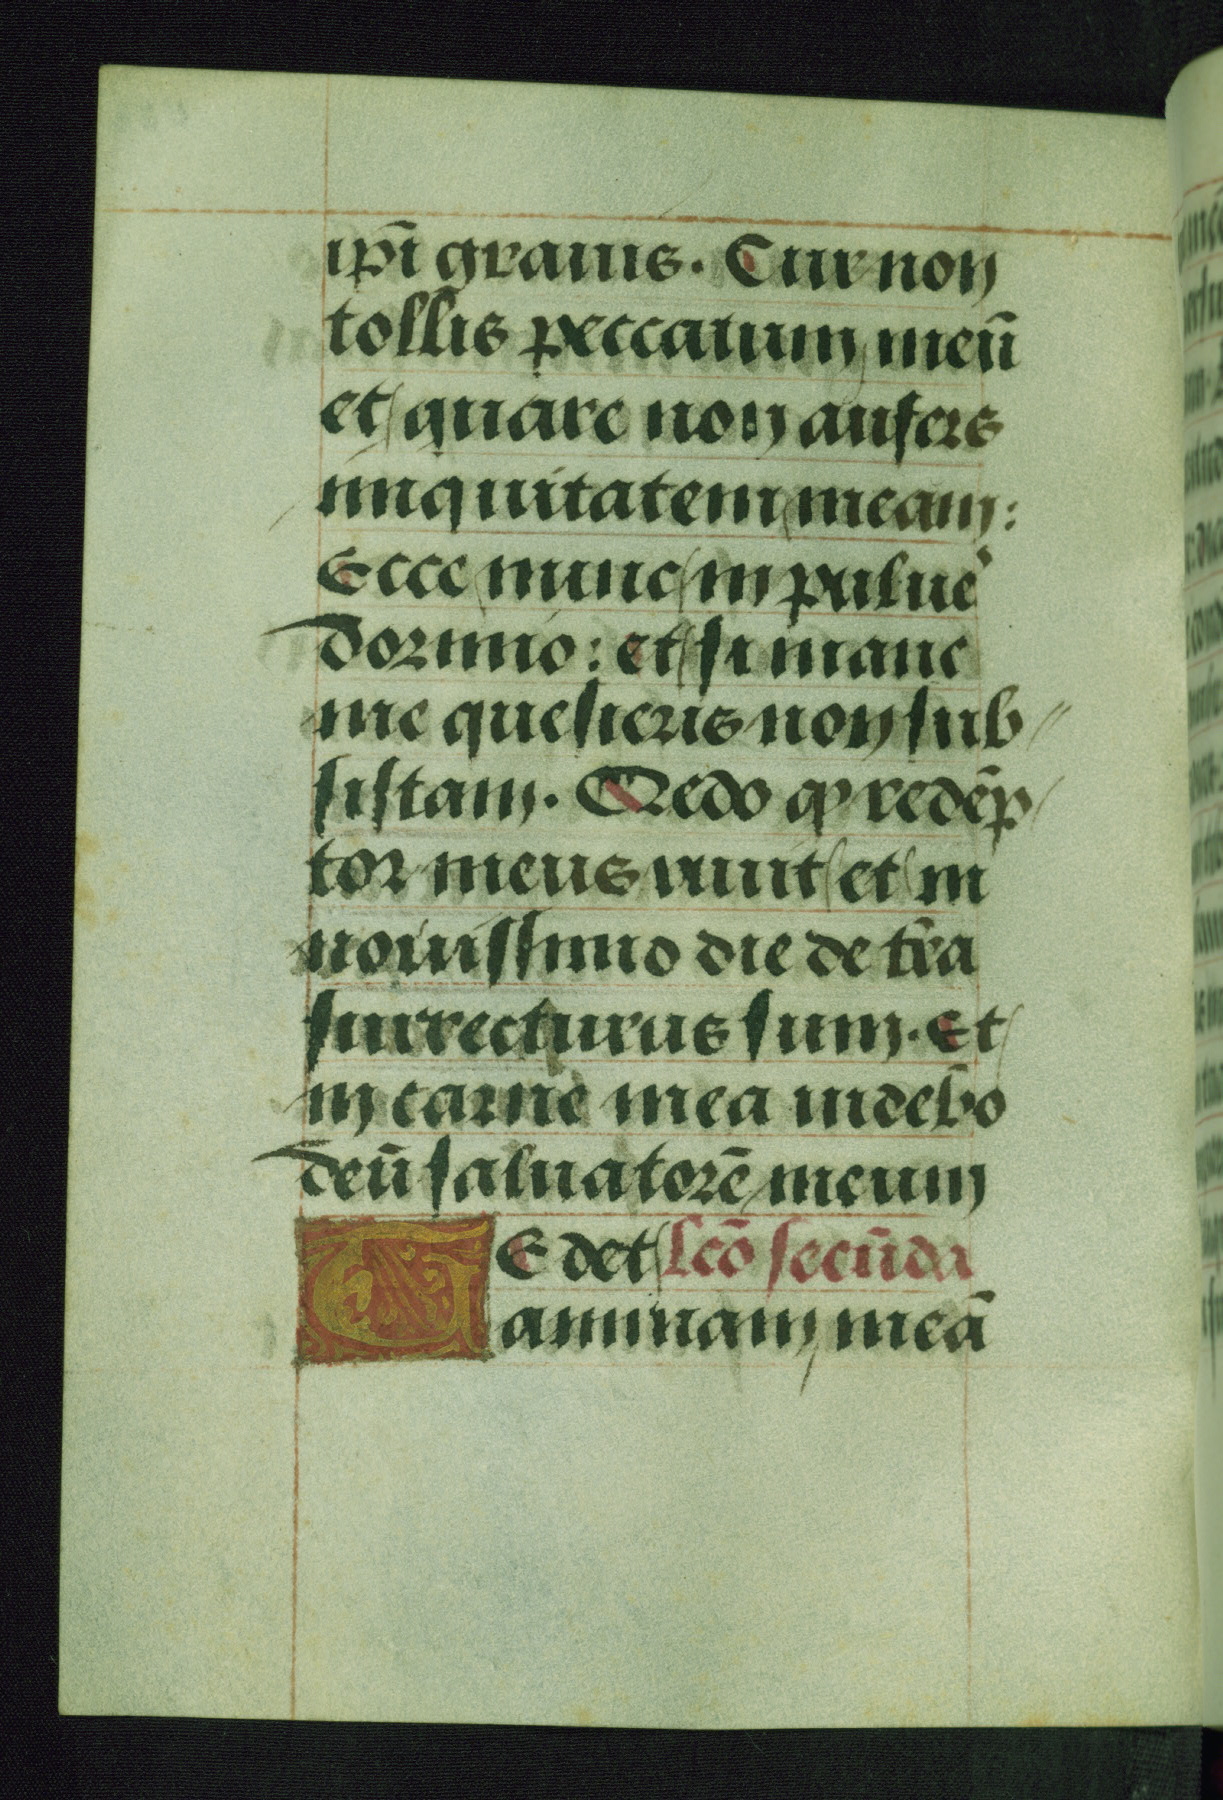 ipĩ grauis. Cur non
tollis peccatum meũ
et quare non aufers
iniquitatem meam:
Ecce nunc in puluẽ
dormio: et si mane
me quesieris non sub
sistam. Credo ꝙ redẽp
tor meus viuit et in
nouissimo die de tr̃a
surrecturus sum. Et
in carne mea uidebo
deũ saluatorẽ meum
TEdet lcõ secũda
animam meã